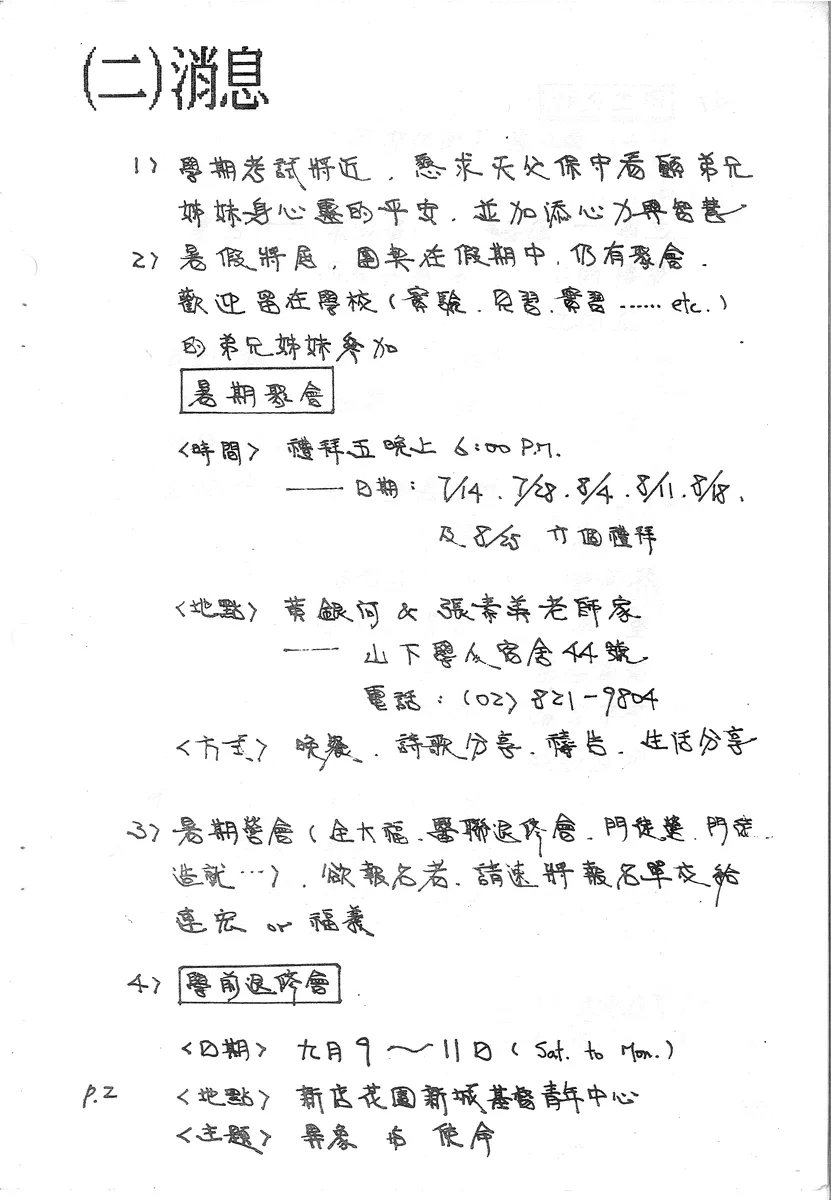 (二)消息
1) 學期考試將近、懇求天父保守看顧弟兄
姊妹身心靈的平安、並加添心力與智慧
2) 暑假將屆、團契在假期中、仍有聚會、
歡迎留在學校(實驗、見習、實習……etc.)
的弟兄姊妹參加
暑期聚會
<時間> 禮拜五晚上 6:00 P.M.
—— 日期: 7/14、7/28、8/4、8/11、8/18、
及 8/25 六個禮拜
<地點> 黃銀河 & 張素英老師家
—— 山下學人宿舍44號
電話:(02) 821-9804
<方式> 晚餐、詩歌分享、禱告、生活分享
3) 暑期營會(全大福、醫聯退修會、門徒營、門徒
造就…)、欲報名者、請速將報名單交給
宏 or 福義
4) 學前退修會
<日期> 九月9～11日(Sat. to Mon.)
p.2 <地點> 新店花園新城基督青年中心
<主題> 異象與使命